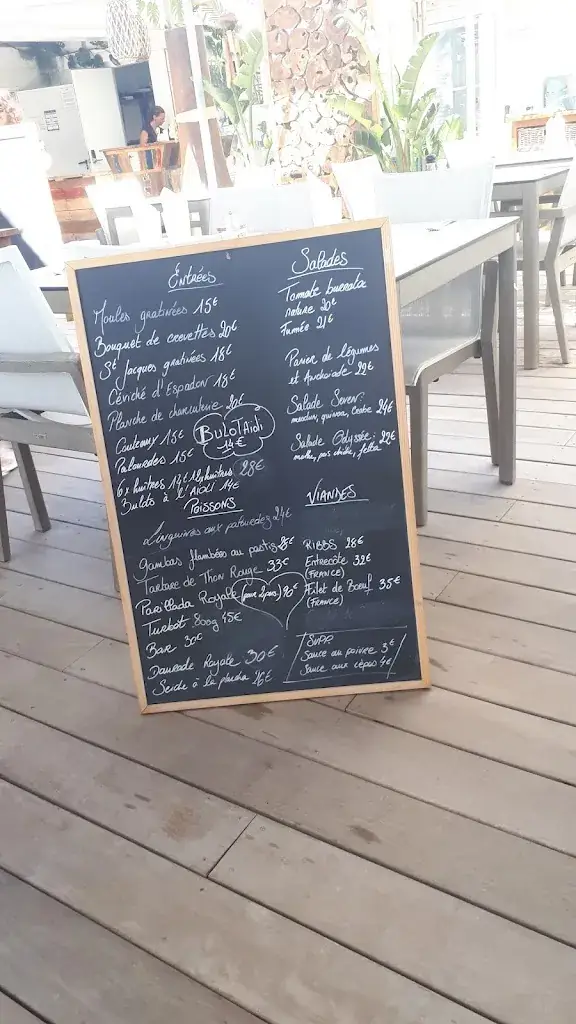 Entrées
Moules gratinées 15€
Bouquet de crevettes 20€
St Jacques gratinées 18€
Céviché d'Espadon 18€
Planche de charcuterie 20€
Couteaux 15€
Palourdes 15€
BULOT Aïoli
14€
6 huitres 14€ 12 huitres 28€
Bulots à l'AIOLI 14€
POISSONS
Linguines aux palourdes 24€
Gambas flambées au pastis
Tartare de Thon Rouge 33€
Parillada Royale (pour 2 pers) 90€
Turbot 800g 45€
Bar 30€
Daurade Royale 30€
Seiche à la plancha 26€
Salades
Tomate burrata
nature 20€
Fumée 21€
Panier de légumes
et Anchoïade 22€
Salade Seven:
quinoa, 24€
Salade Odyssée: 22€
pois chiche, feta
VIANDES
RIBBS 28€
Entrecôte 32€
(FRANCE)
Filet de Boeuf 35€
(FRANCE)
SUPP.
Sauce au poivre 3€
Sauce aux cèpes 4€